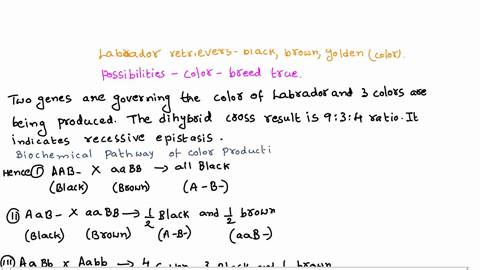 Labrador retrievers - black, brown, golden (color).
Possibilities - color - breed true.
Two genes are governing the color of Labrador and 3 colors are
being produced. The dihybrid cross result is 9:3:4 ratio. It
indicates recessive epistasis.
Biochemical Pathway of color Producti
Hence (I) AAB- X aaBB → all Black
(Black) (Brown) (A-B-)
(II) AaB- X aaBB → 1/2 Black and 1/2 brown
(Black) (Brown) (A-B-) (aaB-)
(III) AaBb X Aabb → 4 3 Black and 1 brown